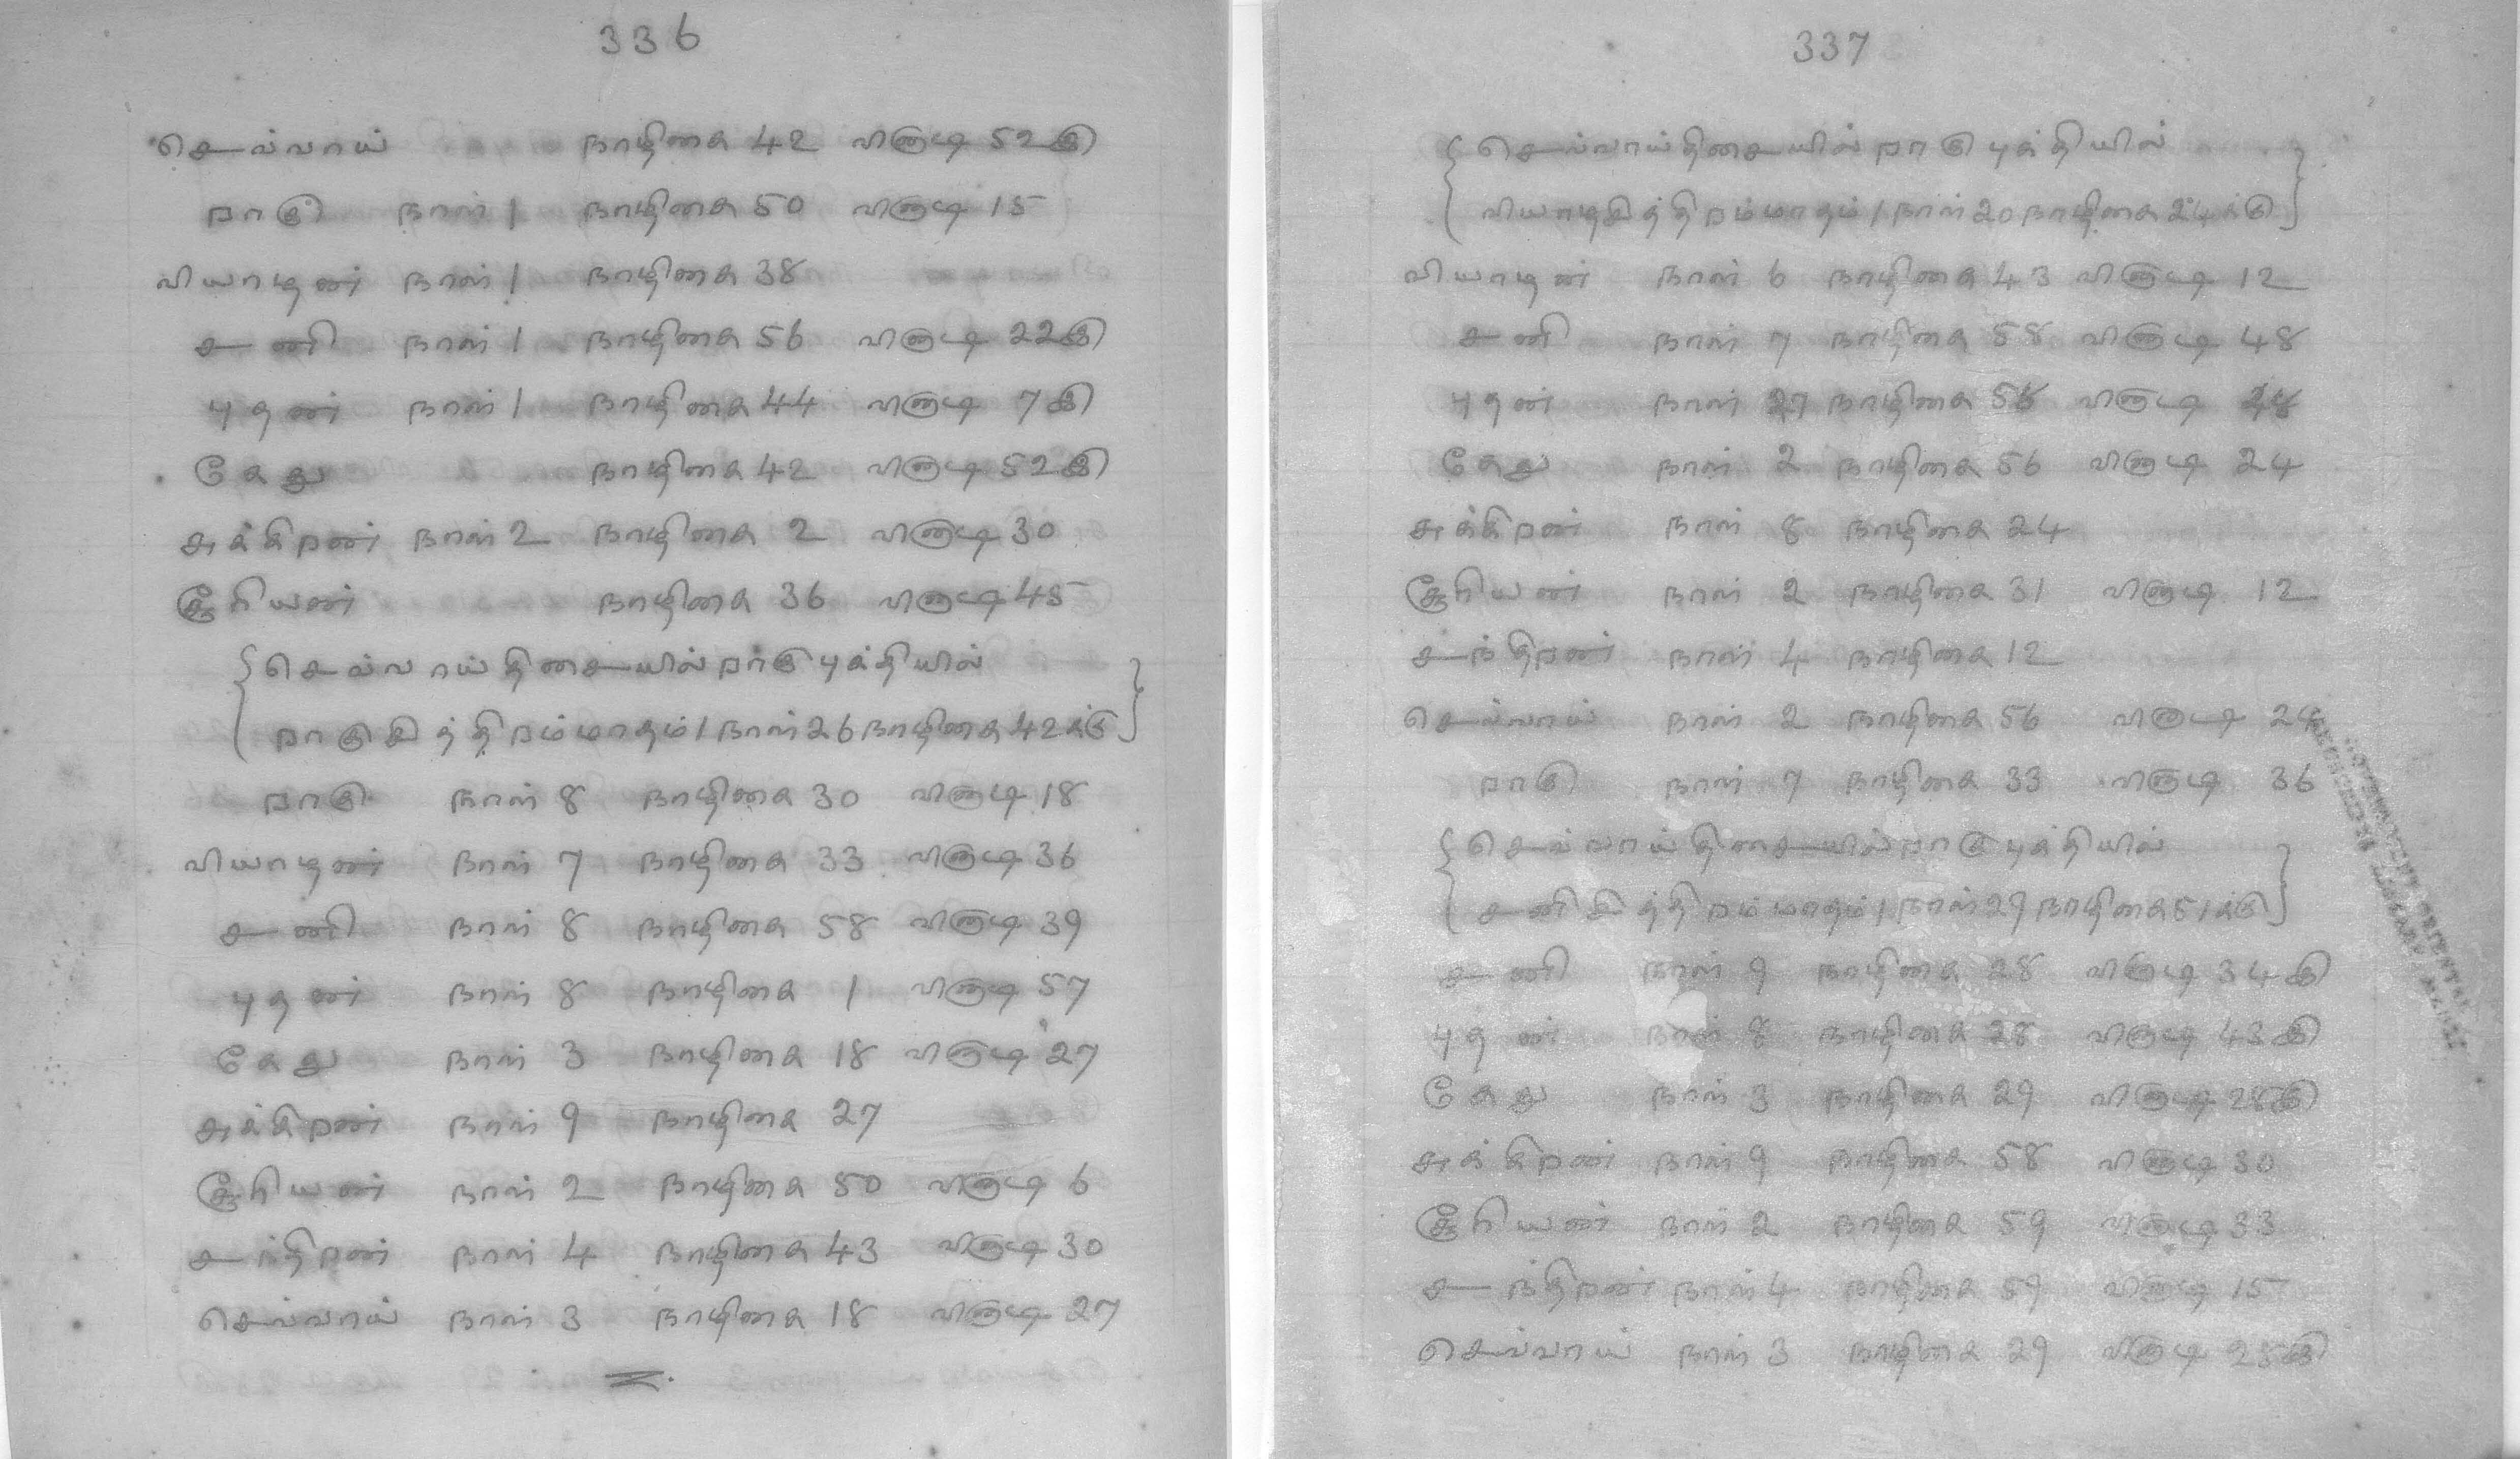 336
செவ்வாய் நாழிகை 42 விநாடி 52௫
ராகு நாள் 1 நாழிகை 50 விநாடி 15
வியாழன் நாள் 1 நாழிகை 38
சனி நாள் 1 நாழிகை 56 விநாடி 22௫
புதன் நாள் 1 நாழிகை 44 விநாடி 7௫
கேது நாழிகை 42 விநாடி 52௫
சுக்கிரன் நாள் 2 நாழிகை 2 விநாடி 30
சூரியன் நாழிகை 36 விநாடி 45
{செவ்வாய் திசையில் ராகு புக்தியில்
ராகு சித்திரம் மாதம் 1 நாள் 26 நாழிகை 42க்கு}
ராகு நாள் 8 நாழிகை 30 விநாடி 18
வியாழன் நாள் 7 நாழிகை 33 விநாடி 36
சனி நாள் 8 நாழிகை 58 விநாடி 39
புதன் நாள் 8 நாழிகை 1 விநாடி 57
கேது நாள் 3 நாழிகை 18 விநாடி 27
சுக்கிரன் நாள் 9 நாழிகை 27
சூரியன் நாள் 2 நாழிகை 50 விநாடி 6
சந்திரன் நாள் 4 நாழிகை 43 விநாடி 30
செவ்வாய் நாள் 3 நாழிகை 18 விநாடி 27
337
{செவ்வாய் திசையில் ராகு புக்தியில்
வியாழ சித்திரம் மாதம் 1 நாள் 20 நாழிகை 24க்கு}
வியாழன் நாள் 6 நாழிகை 43 விநாடி 12
சனி நாள் 7 நாழிகை 58 விநாடி 48
புதன் நாள் 7 நாழிகை விநாடி
கேது நாள் 2 நாழிகை 56 விநாடி 24
சுக்கிரன் நாள் 8 நாழிகை 24
சூரியன் நாள் 2 நாழிகை 31 விநாடி 12
சந்திரன் நாள் 4 நாழிகை 12
செவ்வாய் நாள் 2 நாழிகை 56 விநாடி 24
ராகு நாள் 7 நாழிகை 33 விநாடி 36
{செவ்வாய் திசையில் ராகு புக்தியில்
சனி சித்திரம் மாதம் 1 நாள் 29 நாழிகை 51க்கு}
சனி நாள் 9 நாழிகை 28 விநாடி 34௫
புதன் நாள் 8 நாழிகை 28 விநாடி 43௫
கேது நாள் 3 நாழிகை 29 விநாடி 28௫
சுக்கிரன் நாள் 9 நாழிகை 58 விநாடி 30
சூரியன் நாள் 2 நாழிகை 59 விநாடி 33
சந்திரன் நாள் 4 நாழிகை 59 விநாடி 15
செவ்வாய் நாள் 3 நாழிகை 29 விநாடி 28௫